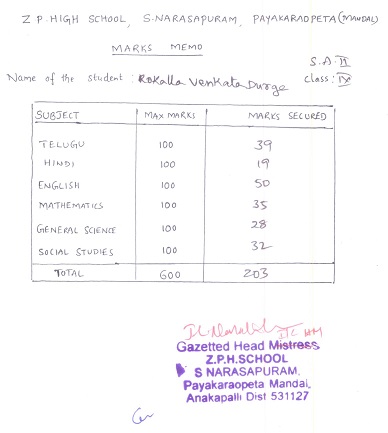 Z.P. HIGH SCHOOL, S.NARASAPURAM, PAYAKARAOPETA(MANDAL)
MARKS MEMO
S.A: II
Name of the student : Rokalla Venkata Durge
class: IX
SUBJECT MAX MARKS MARKS SECURED
TELUGU 100 39
HINDI 100 19
ENGLISH 100 50
MATHEMATICS 100 35
GENERAL SCIENCE 100 28
SOCIAL STUDIES 100 32
TOTAL 600 203
Gazetted Head Mistress
Z.P.H.SCHOOL
S NARASAPURAM,
Payakaraopeta Mandal,
Anakapalli Dist 531127